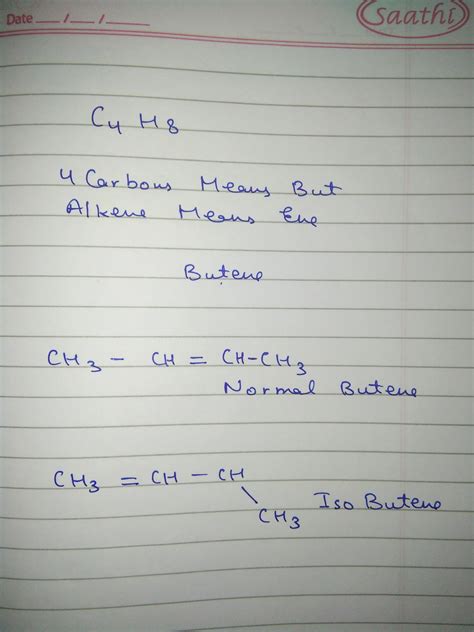 Date __/__/__ Saathi
C4 H8
4 Carbons Means But
Alkene Means Ene
Butene
CH3 - CH = CH-CH3
Normal Butene
CH3 = CH - CH
\
CH3 Iso Butene